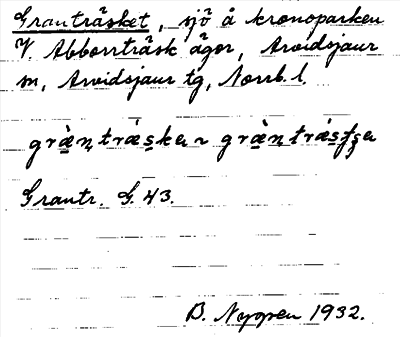 Granträsket, sjö å kronoparken
V. Abborrträsk ägor, Arvidsjaur
sn, Arvidsjaur tg, Norrb. l.
Grantr. G. 43.
B. Nygren 1932.